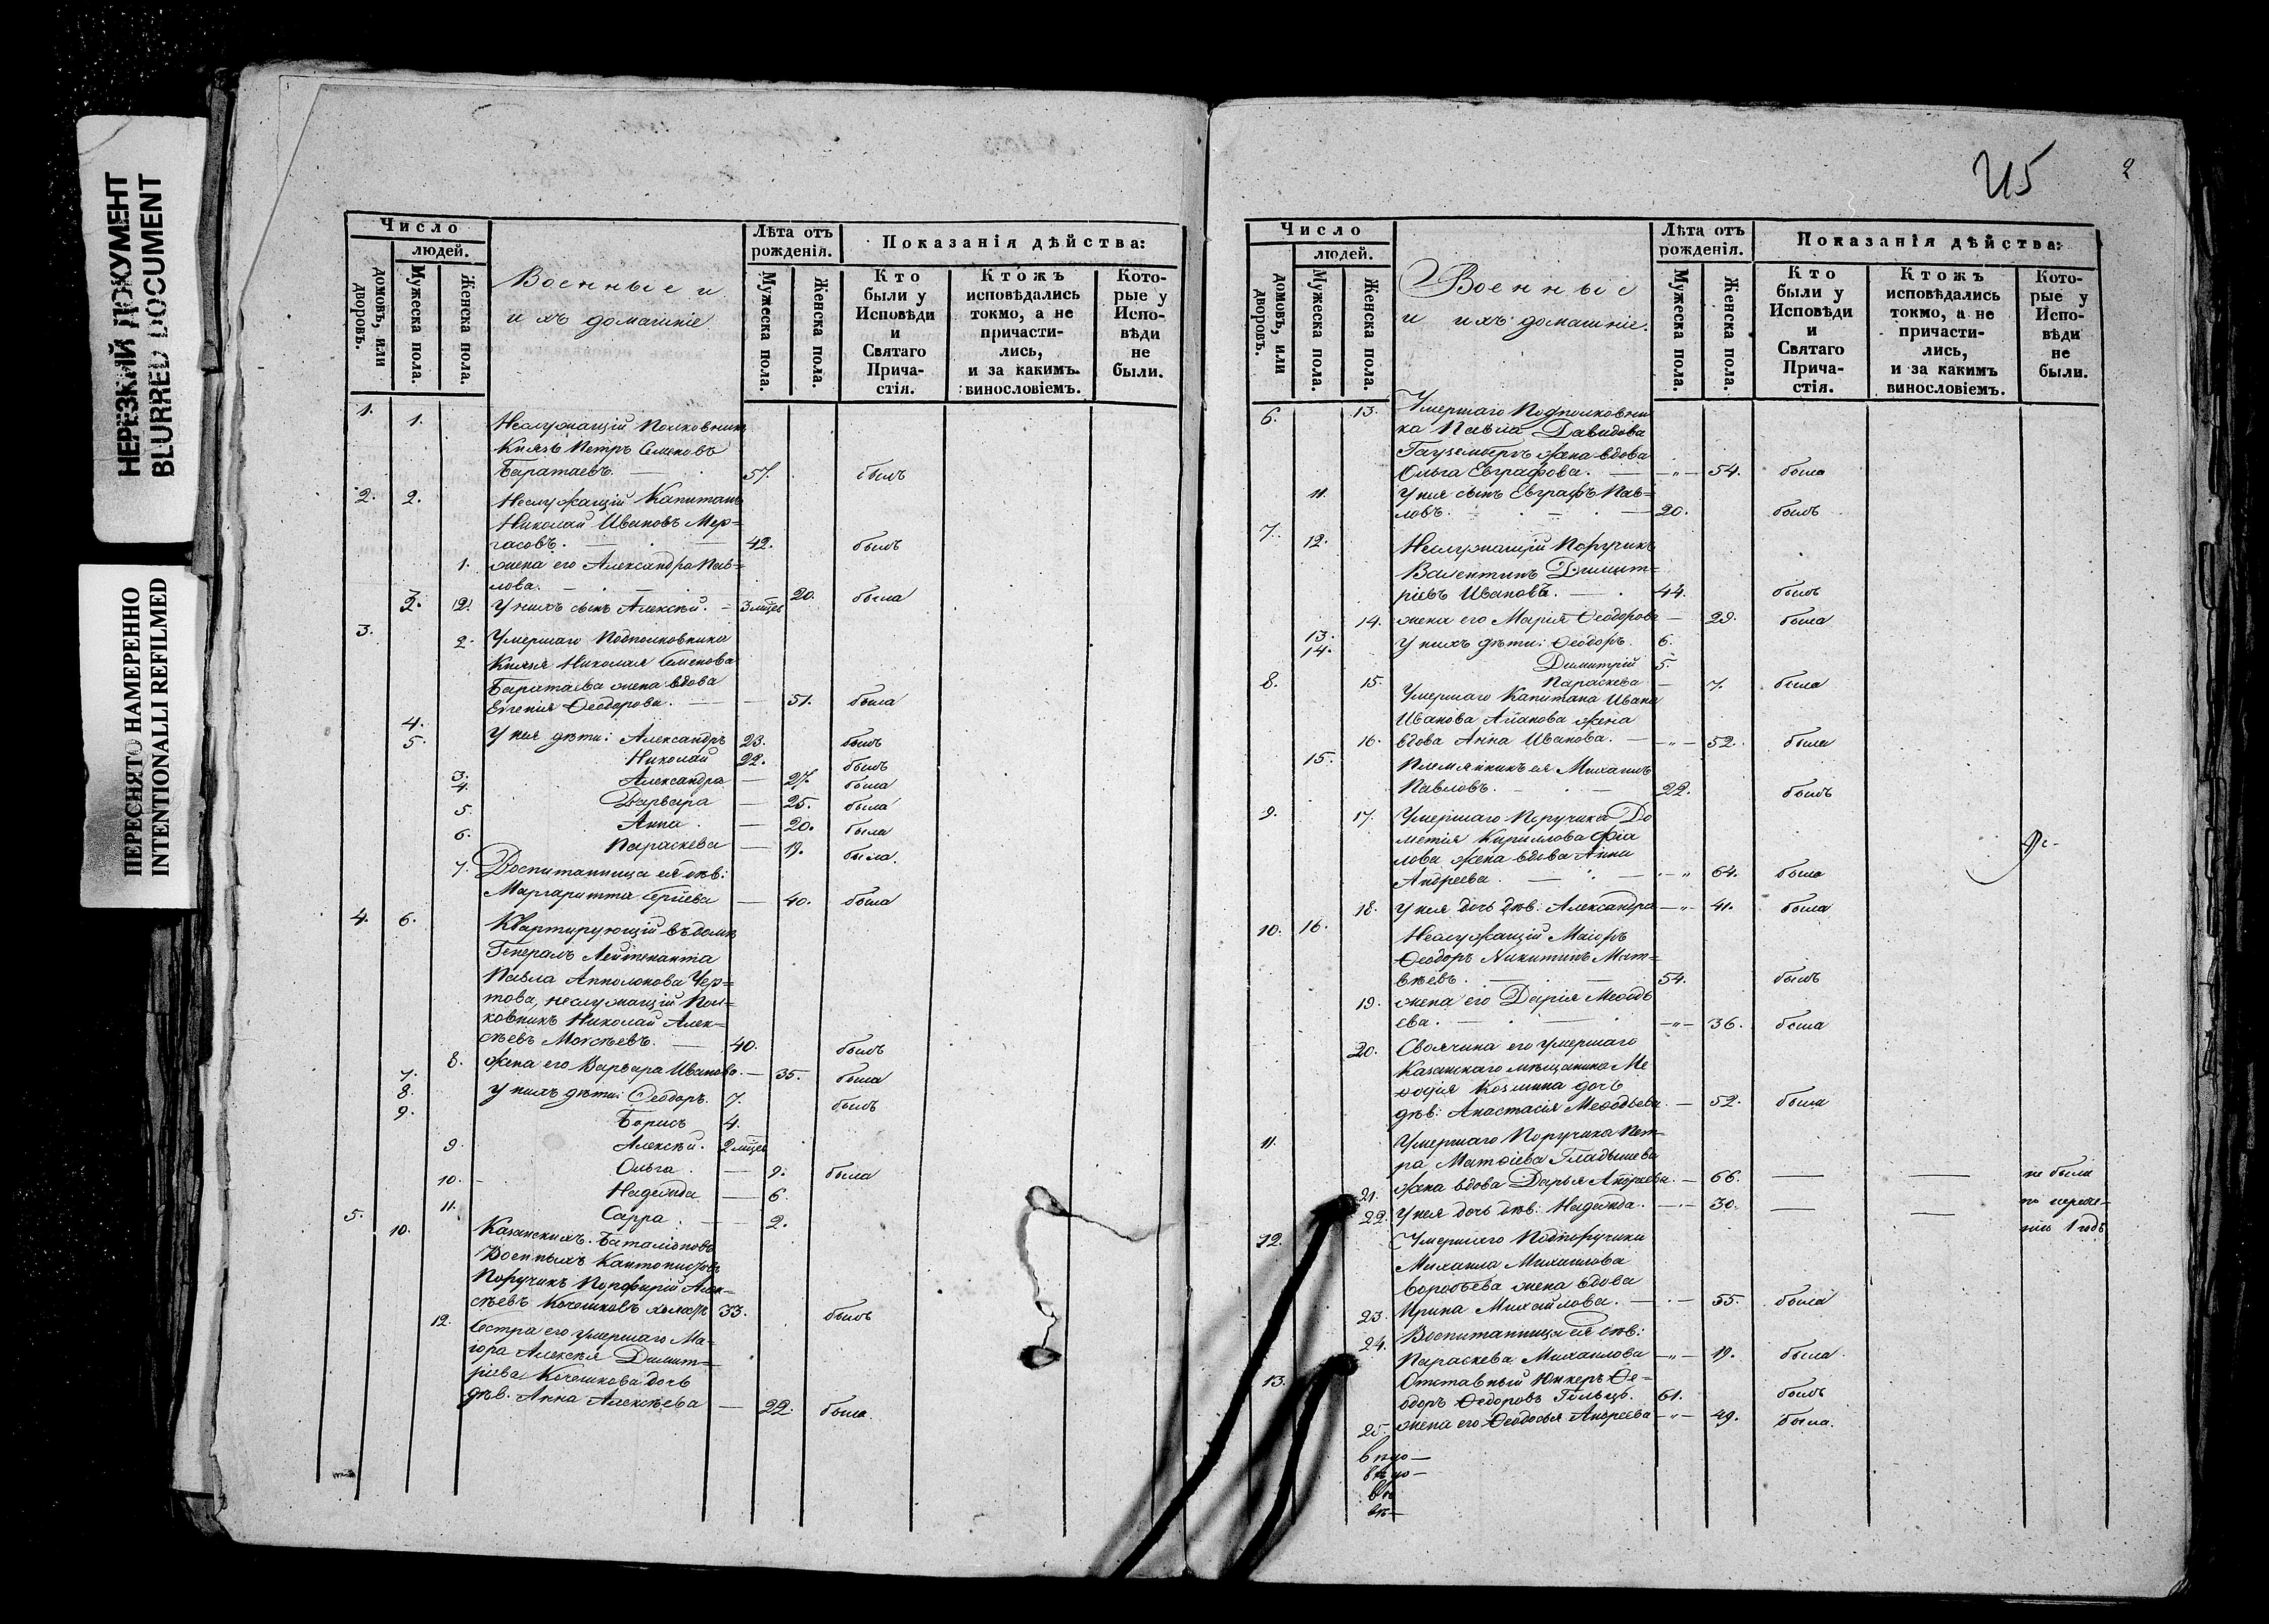 НЕРЕЗКИЙ ДОКУМЕНТ
BLURRED DOCUMENT
ПЕРЕСНЯТО НАМЕРЕННО
INTENTIONALLI REFILMED
Число
людей.
домовъ, или дворовъ.
Мужеска пола.
Женска пола.
Военные и
ихъ домашніе
Лѣта отъ рожденія.
Мужеска пола.
Женска пола.
Показанія дѣйства:
Кто были у Исповѣди и Святаго Прича-стія.
Ктожъ исповѣдались токмо, а не причасти-лись, и за какимъ винословіемъ.
Кото-рые у Испо-вѣди не были.
1. 1. Неслужащій Полковникъ
Князь Петръ Семеновъ
Баратаевъ. 57. былъ
2. 2. Неслужащій Капитанъ
Николай Ивановъ Мер=
гасовъ. 42. былъ
1. жена его Александра Пав=
лова. 20. была
3. У нихъ сынъ Алексѣй. 3 мѣсц
3. 2. Умершаго Подполковника
Князя Николая Семенова
Баратаева жена вдова
Евгенія Ѳеодорова. 51. была
4. У нея дѣти: Александръ 23. былъ
5. Николай 22. былъ
3. Александра 27. была
4. Варвара 25. была
5. Анна 20. была
6. Параскева 19. была.
7. Воспитанница ея дѣв:
Маргаритта Сергіева 40. была
4. 6. Квартирующій въ домѣ
Генералъ Лейтенанта
Павла Апполонова Чер=
това, неслужащій Пол=
ковникъ Николай Алек=
сѣевъ Моисѣевъ. 40. былъ
8. Жена его Варвара Иванова. 35. была
7. У нихъ дѣти: Ѳеодоръ. 7. былъ
8. Борисъ 4.
9. Алексѣй. 2 мѣсц
9. Ольга. 9. была
10. Надежда 6.
11. Сарра. 2.
5. 10. Казанскихъ Баталіоновъ
Военныхъ Кантонистовъ
Поручикъ Порфирій Алек=
сѣевъ Кочешковъ холост 33. былъ
12. Сестра его умершаго Ма=
іора Алексѣя Димит=
ріева Кочешкова дочь
дѣв. Анна Алексѣева 22. была.
2
Число
людей.
домовъ, или дворовъ.
Мужеска пола.
Женска пола.
Военные
и ихъ домашніе.
Лѣта отъ рожденія.
Мужеска пола.
Женска пола.
Показанія дѣйства:
Кто были у Исповѣди и Святаго Прича-стія.
Ктожъ исповѣдались токмо, а не причасти-лись, и за какимъ винословіемъ.
Кото-рые у Испо-вѣди не были.
6. 13. Умершаго Подполковни
ка Павла Давидова
Гаузенбергъ жена вдова
Ольга Евграфова. 54. была
11. У нея сынъ Евграфъ Пав=
ловъ. 20. былъ
7. 12. Неслужащій Поручикъ
Валентинъ Димит=
ріевъ Ивановъ. 44. былъ
14. жена его Марія Ѳеодорова 29. была
13. У нихъ дѣти: Ѳеодоръ. 6.
14. Димитрій 5.
15. Параскева 7. была
8. Умершаго Капитана Ивана
Иванова Аланова жена
16. вдова Анна Иванова. 52. была
15. Племянникъ ея Михаилъ
Павловъ. 22. былъ
9. 17. Умершаго Поручика До
метія Кириллова Фіа
лова жена вдова Анна
Андреева. 64. была
18. У нея дочь дѣв: Александра 41. была
10. 16. Неслужащій Маіоръ
Ѳеодоръ Никитинъ Мат=
вѣевъ. 54. былъ
19. жена его Дарія Меѳодь
ева. 36. была
20. Своячина его умершаго
Казанскаго мѣщанина Ме
ѳодія Козмина дочь
дѣв: Анастасія Меѳодьева. 52. была
11. Умершаго Поручика Пет=
ра Матѳіева Гладышева
21. жена вдова Дарья Андреева. 66. не была
22. У нея дочь дѣв: Надежда. 30.
1 годъ
12. Умершаго Подпоручика
Михаила Михаилова
Воробьева жена вдова
23. Ирина Михайлова. 55. была
24. Воспитанница ея дѣв:
Параскева Михаилова 19. была
13. Отставный Юнкеръ Ѳе=
одоръ Ѳедоровъ Гильцъ. 61. былъ
25. жена его Ѳеодосья Андреева 49. была.